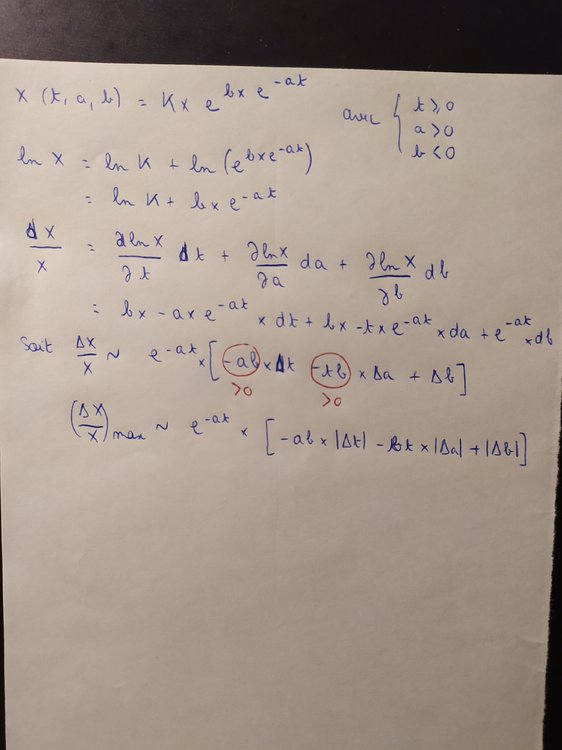 X (t, a, b) = K × e^{b × e^{-at}}
avec { t ⩾ 0
a > 0
b < 0
ln X = ln K + ln (e^{b × e^{-at}})
= ln K + b × e^{-at}
dX/X = ∂ln X/∂t dt + ∂ln X/∂a da + ∂ln X/∂b db
= b × -a × e^{-at} × dt + b × -t × e^{-at} × da + e^{-at} × db
Soit ΔX/X ~ e^{-at} × [-ab × Δt -tb × Δa + Δb]
>0 >0
(ΔX/X)max ~ e^{-at} × [-ab × |Δt| - bt × |Δa| + |Δb|]